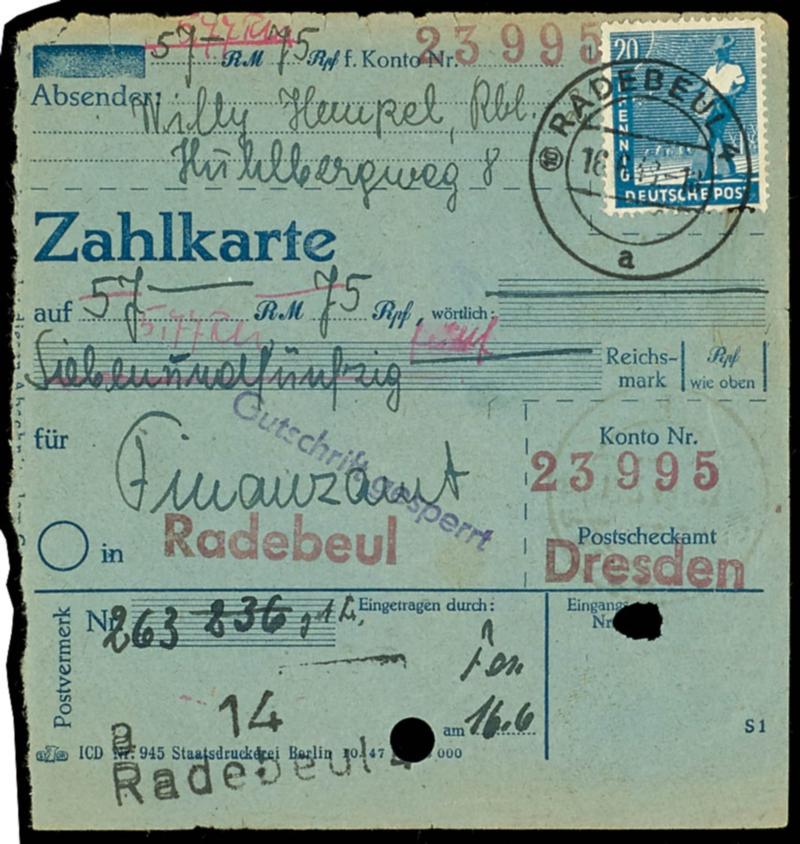 5,77 RM
57 — RM 75 Rpf f. Konto Nr. 23995
Absender: Willy Hempel, Rbl.
8
20
PFENNIG
DEUTSCHE POST
RADEBEUL
16
a
Zahlkarte
auf 57 — RM 75 Rpf, wörtlich:
5,77 RM
Siebenundfünfzig
Reichs-
mark
Rpf
wie oben
für Finanzamt
Gutschrift gesperrt
in Radebeul
Konto Nr.
23995
Postscheckamt
Dresden
Postvermerk
Nr. 263 236
Eingetragen durch:
Eingangs
Nr.
14
am 16.6
S 1
ICD Nr. 945 Staatsdruckerei Berlin 10. 47 000
a
Radebeul